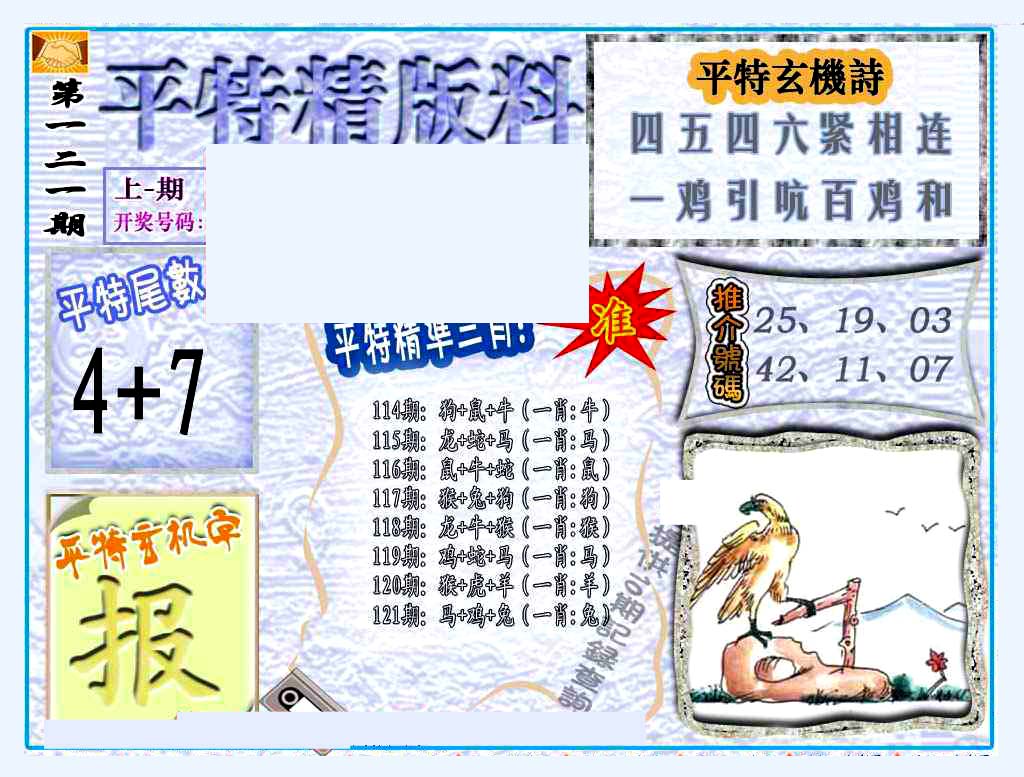 第一二一期
平特精版料
上-期
开奖号码:
平特玄機詩
四五四六紧相连
一鸡引吭百鸡和
平特尾數
4+7
平特精準三肖!
准
推介號碼
25、19、03
42、11、07
114期: 狗+鼠+牛 (一肖:牛)
115期: 龙+蛇+马 (一肖:马)
116期: 鼠+牛+蛇 (一肖:鼠)
117期: 猴+兔+狗 (一肖:狗)
118期: 龙+牛+猴 (一肖:猴)
119期: 鸡+蛇+马 (一肖:马)
120期: 猴+虎+羊 (一肖:羊)
121期: 马+鸡+兔 (一肖:兔)
平特玄机字
报
提供10期記録查詢